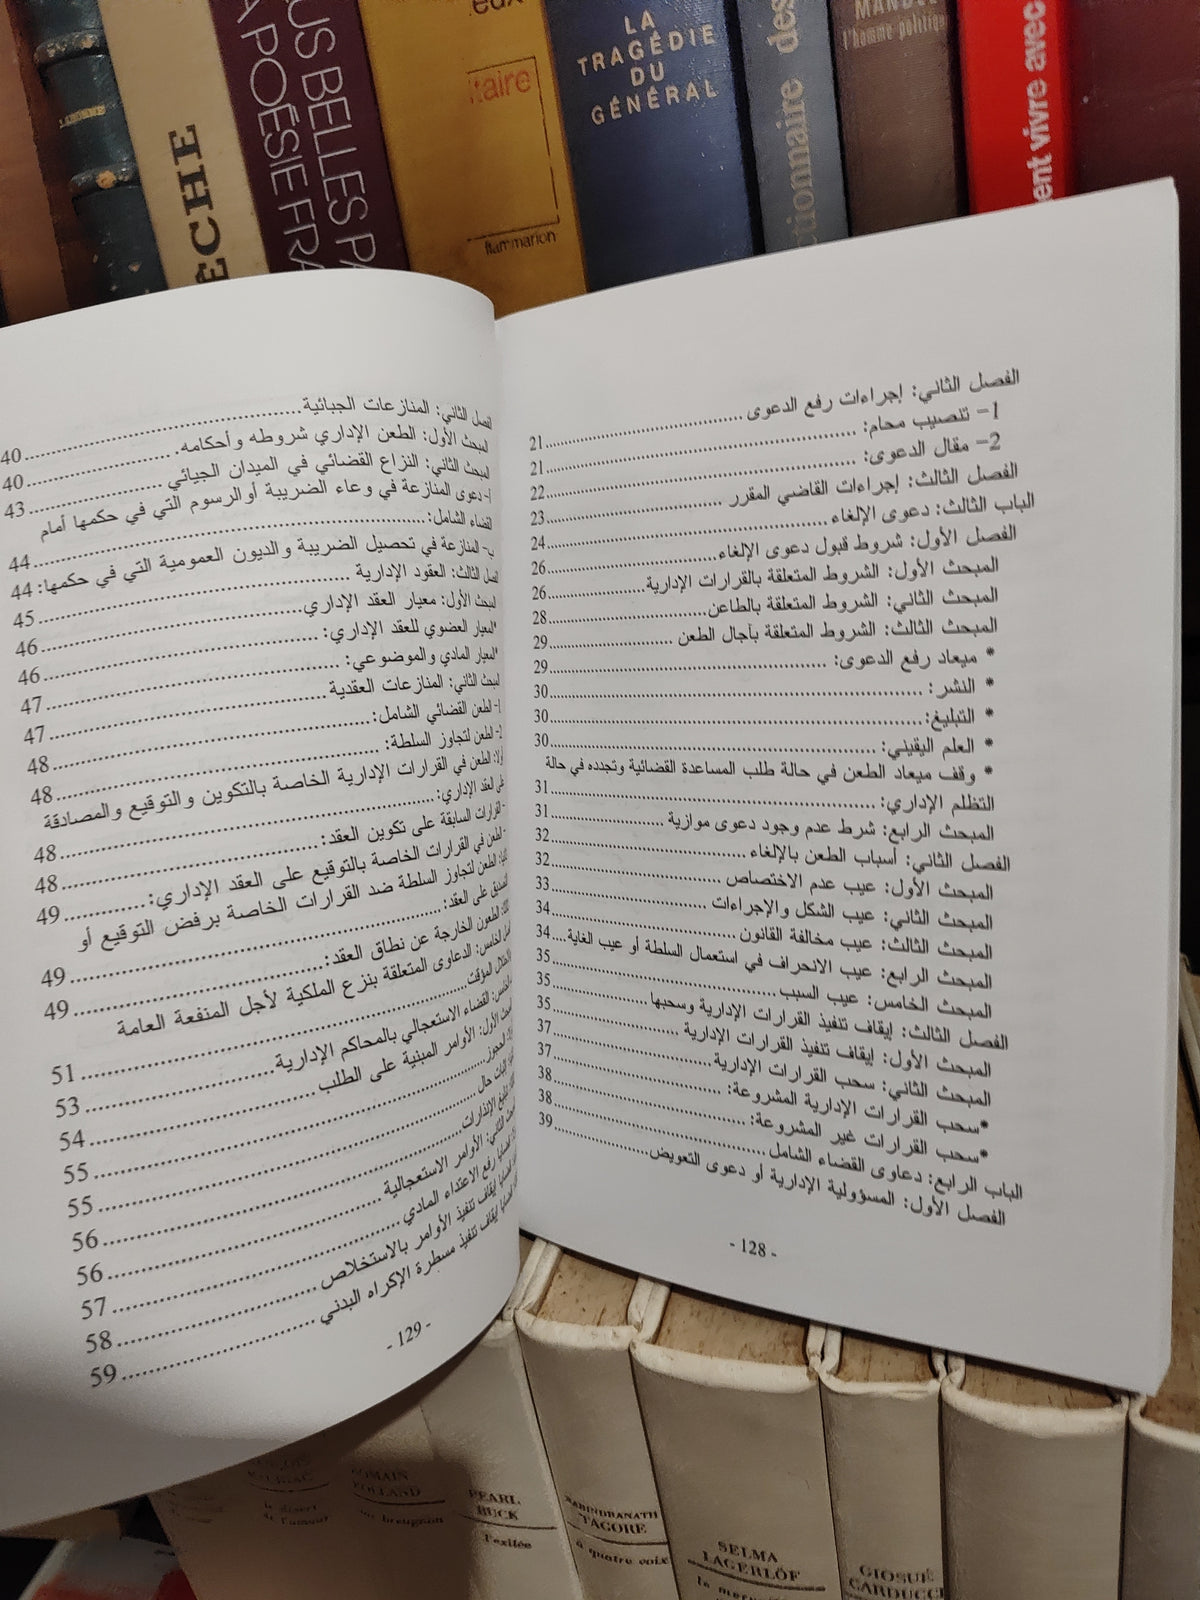 ÊCHE
US BELLES PA
A POÉSIE FRA
eux
taire
flammarion
LA
TRAGÉDIE
DU
GÉNÉRAL
ctionnaire des
MANDEL
l'homme politique
ent vivre avec
الفصل الثاني: إجراءات رفع الدعوى ...... 21
1- تنصيب محام: ...... 21
2- مقال الدعوى: ...... 22
الفصل الثالث: إجراءات القاضي المقرر ...... 23
الباب الثالث: دعوى الإلغاء ...... 24
الفصل الأول: شروط قبول دعوى الإلغاء ...... 26
المبحث الأول: الشروط المتعلقة بالقرارات الإدارية ...... 26
المبحث الثاني: الشروط المتعلقة بالطاعن ...... 28
المبحث الثالث: الشروط المتعلقة بآجال الطعن ...... 29
* ميعاد رفع الدعوى: ...... 29
* النشر: ...... 30
* التبليغ: ...... 30
* العلم اليقيني: ...... 30
* وقف ميعاد الطعن في حالة طلب المساعدة القضائية وتجدده في حالة
التظلم الإداري: ...... 31
المبحث الرابع: شرط عدم وجود دعوى موازية ...... 31
الفصل الثاني: أسباب الطعن بالإلغاء ...... 32
المبحث الأول: عيب عدم الاختصاص ...... 32
المبحث الثاني: عيب الشكل والإجراءات ...... 33
المبحث الثالث: عيب مخالفة القانون ...... 34
المبحث الرابع: عيب الانحراف في استعمال السلطة أو عيب الغاية .... 34
المبحث الخامس: عيب السبب ...... 35
الفصل الثالث: إيقاف تنفيذ القرارات الإدارية وسحبها ...... 35
المبحث الأول: إيقاف تنفيذ القرارات الإدارية ...... 35
المبحث الثاني: سحب القرارات الإدارية ...... 37
*سحب القرارات الإدارية المشروعة: ...... 37
*سحب القرارات غير المشروعة: ...... 38
الباب الرابع: دعاوى القضاء الشامل ...... 38
الفصل الأول: المسؤولية الإدارية او دعوى التعويض ...... 39
- 128 -
الفصل الثاني: المنازعات الجبائية ...... 40
المبحث الأول: الطعن الإداري شروطه وأحكامه. ...... 40
المبحث الثاني: النزاع القضائي في الميدان الجبائي ...... 43
أ- دعوى المنازعة في وعاء الضريبة أو الرسوم التي في حكمها أمام
القضاء الشامل: ...... 44
ب- المنازعة في تحصيل الضريبة والديون العمومية التي في حكمها: 44
الفصل الثالث: العقود الإدارية ...... 45
المبحث الأول: معيار العقد الإداري ...... 46
*المعيار العضوي للعقد الإداري: ...... 46
*المعيار المادي والموضوعي: ...... 47
المبحث الثاني: المنازعات العقدية ...... 47
1- الطعن القضائي الشامل: ...... 48
2- الطعن لتجاوز السلطة: ...... 48
أولا: الطعن في القرارات الإدارية الخاصة بالتكوين والتوقيع والمصادقة
على العقد الإداري: ...... 48
- القرارات السابقة على تكوين العقد: ...... 48
- الطعن في القرارات الخاصة بالتوقيع على العقد الإداري: ...... 49
ثانيا: الطعن لتجاوز السلطة ضد القرارات الخاصة برفض التوقيع أو
التصديق على العقد: ...... 49
ثالثا: الطعون الخارجة عن نطاق العقد: ...... 49
الفصل الخامس: الدعاوى المتعلقة بنزع الملكية لأجل المنفعة العامة
والاحتلال المؤقت ...... 51
الخامس: القضاء الاستعجالي بالمحاكم الإدارية ...... 53
المبحث الأول: الأوامر المبنية على الطلب ...... 54
الحجوز ...... 55
إثبات حال ...... 55
تبليغ الإنذارات ...... 56
المبحث الثاني: الأوامر الاستعجالية ...... 56
رفع الاعتداء المادي ...... 57
إيقاف تنفيذ الأوامر بالاستخلاص ...... 58
إيقاف تنفيذ مسطرة الإكراه البدني ...... 59
- 129 -
le désert
de l'amour
ROMAIN
ROLLAND
PEARL
BUCK
l'exilée
RABINDRANATH
TAGORE
à quatre voix
SELMA
LAGERLÖF
GIOSUÈ
CARDUCCI